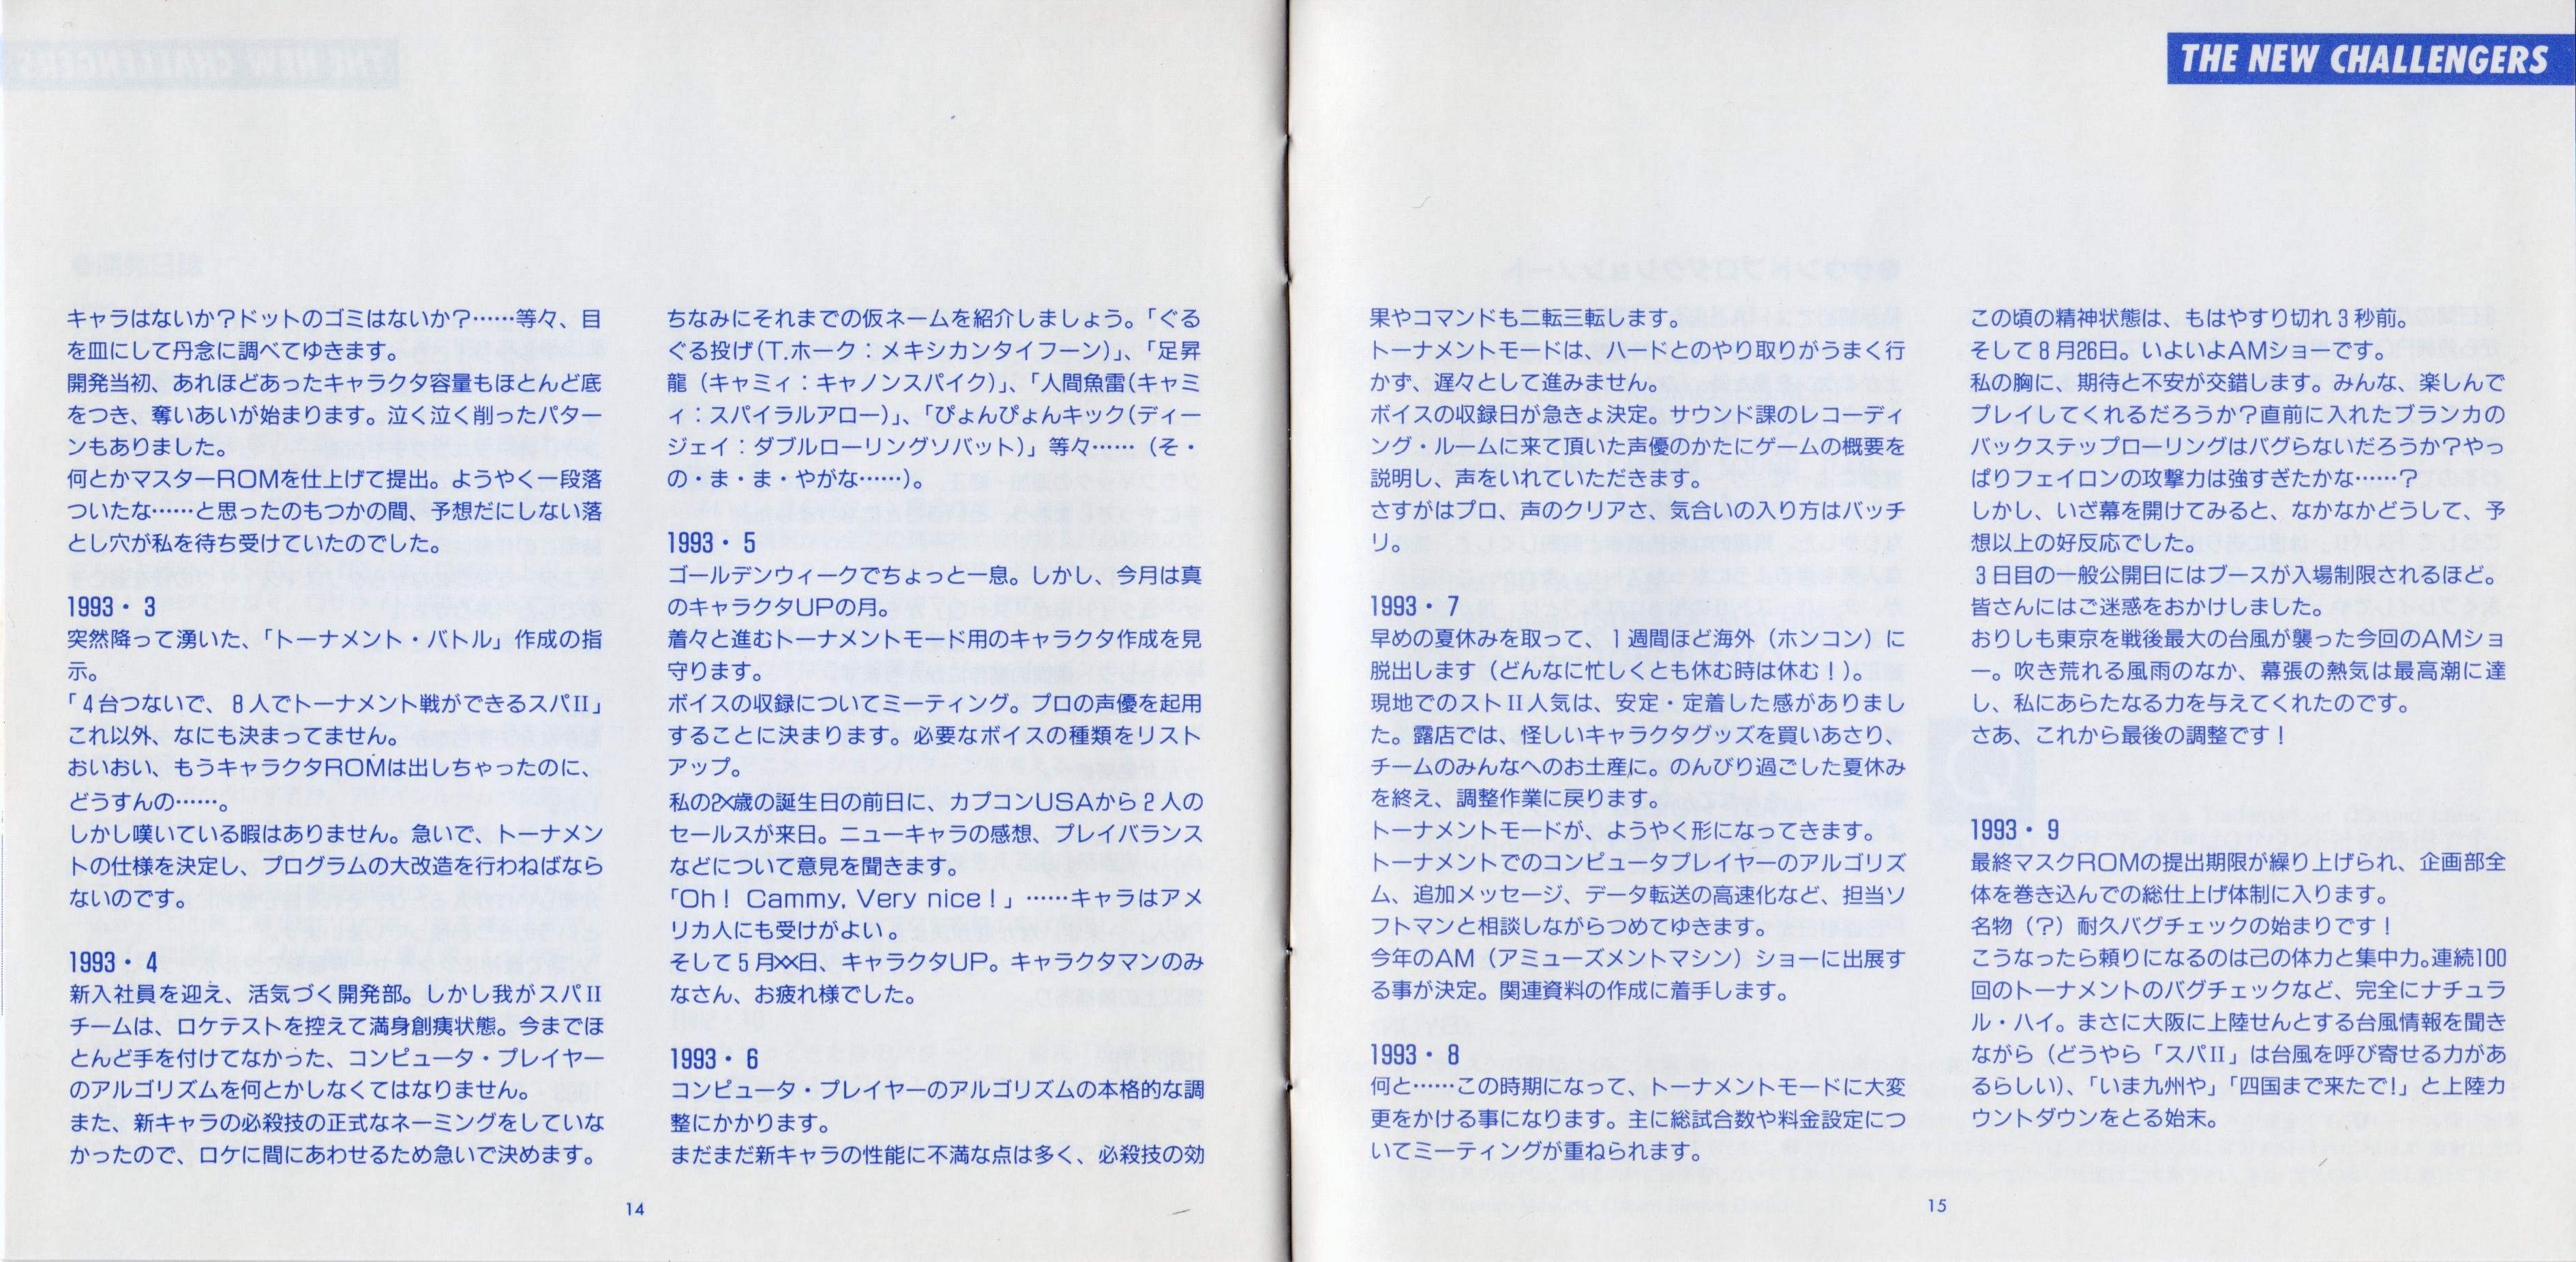 THE NEW CHALLENGERS
キャラはないか？ドットのゴミはないか？……等々、目
を皿にして丹念に調べてゆきます。
開発当初、あれほどあったキャラクタ容量もほとんど底
をつき、奪いあいが始まります。泣く泣く削ったパター
ンもありました。
何とかマスターROMを仕上げて提出。ようやく一段落
ついたな……と思ったのもつかの間、予想だにしない落
とし穴が私を待ち受けていたのでした。
1993・3
突然降って湧いた、「トーナメント・バトル」作成の指
示。
「4台つないで、8人でトーナメント戦ができるスパII」
これ以外、なにも決まってません。
おいおい、もうキャラクタROMは出しちゃったのに、
どうすんの……。
しかし嘆いている暇はありません。急いで、トーナメン
トの仕様を決定し、プログラムの大改造を行わねばなら
ないのです。
1993・4
新入社員を迎え、活気づく開発部。しかし我がスパII
チームは、ロケテストを控えて満身創痍状態。今までほ
とんど手を付けてなかった、コンピュータ・プレイヤー
のアルゴリズムを何とかしなくてはなりません。
また、新キャラの必殺技の正式なネーミングをしていな
かったので、ロケに間にあわせるため急いで決めます。
ちなみにそれまでの仮ネームを紹介しましょう。「ぐる
ぐる投げ（T.ホーク：メキシカンタイフーン）」、「足昇
龍（キャミィ：キャノンスパイク）」、「人間魚雷（キャミ
ィ：スパイラルアロー）」、「ぴょんぴょんキック（ディー
ジェイ：ダブルローリングソバット）」等々……（そ・
の・ま・ま・やがな……）。
1993・5
ゴールデンウィークでちょっと一息。しかし、今月は真
のキャラクタUPの月。
着々と進むトーナメントモード用のキャラクタ作成を見
守ります。
ボイスの収録についてミーティング。プロの声優を起用
することに決まります。必要なボイスの種類をリスト
アップ。
私の2X歳の誕生日の前日に、カプコンUSAから2人の
セールスが来日。ニューキャラの感想、プレイバランス
などについて意見を聞きます。
「Oh！ Cammy, Very nice！」……キャラはアメ
リカ人にも受けがよい。
そして5月XX日、キャラクタUP。キャラクタマンのみ
なさん、お疲れ様でした。
1993・6
コンピュータ・プレイヤーのアルゴリズムの本格的な調
整にかかります。
まだまだ新キャラの性能に不満な点は多く、必殺技の効
14
果やコマンドも二転三転します。
トーナメントモードは、ハードとのやり取りがうまく行
かず、遅々として進みません。
ボイスの収録日が急きょ決定。サウンド課のレコーディ
ング・ルームに来て頂いた声優のかたにゲームの概要を
説明し、声をいれていただきます。
さすがはプロ、声のクリアさ、気合いの入り方はバッチ
リ。
1993・7
早めの夏休みを取って、1週間ほど海外（ホンコン）に
脱出します（どんなに忙しくとも休む時は休む！）。
現地でのストII人気は、安定・定着した感がありまし
た。露店では、怪しいキャラクタグッズを買いあさり、
チームのみんなへのお土産に。のんびり過ごした夏休み
を終え、調整作業に戻ります。
トーナメントモードが、ようやく形になってきます。
トーナメントでのコンピュータプレイヤーのアルゴリズ
ム、追加メッセージ、データ転送の高速化など、担当ソ
フトマンと相談しながらつめてゆきます。
今年のAM（アミューズメントマシン）ショーに出展す
る事が決定。関連資料の作成に着手します。
1993・8
何と……この時期になって、トーナメントモードに大変
更をかける事になります。主に総試合数や料金設定につ
いてミーティングが重ねられます。
この頃の精神状態は、もはやすり切れ3秒前。
そして8月26日。いよいよAMショーです。
私の胸に、期待と不安が交錯します。みんな、楽しんで
プレイしてくれるだろうか？直前に入れたブランカの
バックステップローリングはバグらないだろうか？やっ
ぱりフェイロンの攻撃力は強すぎたかな……？
しかし、いざ幕を開けてみると、なかなかどうして、予
想以上の好反応でした。
3日目の一般公開日にはブースが入場制限されるほど。
皆さんにはご迷惑をおかけしました。
おりしも東京を戦後最大の台風が襲った今回のAMショ
ー。吹き荒れる風雨のなか、幕張の熱気は最高潮に達
し、私にあらたなる力を与えてくれたのです。
さあ、これから最後の調整です！
1993・9
最終マスクROMの提出期限が繰り上げられ、企画部全
体を巻き込んでの総仕上げ体制に入ります。
名物（？）耐久バグチェックの始まりです！
こうなったら頼りになるのは己の体力と集中力。連続100
回のトーナメントのバグチェックなど、完全にナチュラ
ル・ハイ。まさに大阪に上陸せんとする台風情報を聞き
ながら（どうやら「スパII」は台風を呼び寄せる力があ
るらしい）、「いま九州や」「四国まで来たで！」と上陸カ
ウントダウンをとる始末。
15